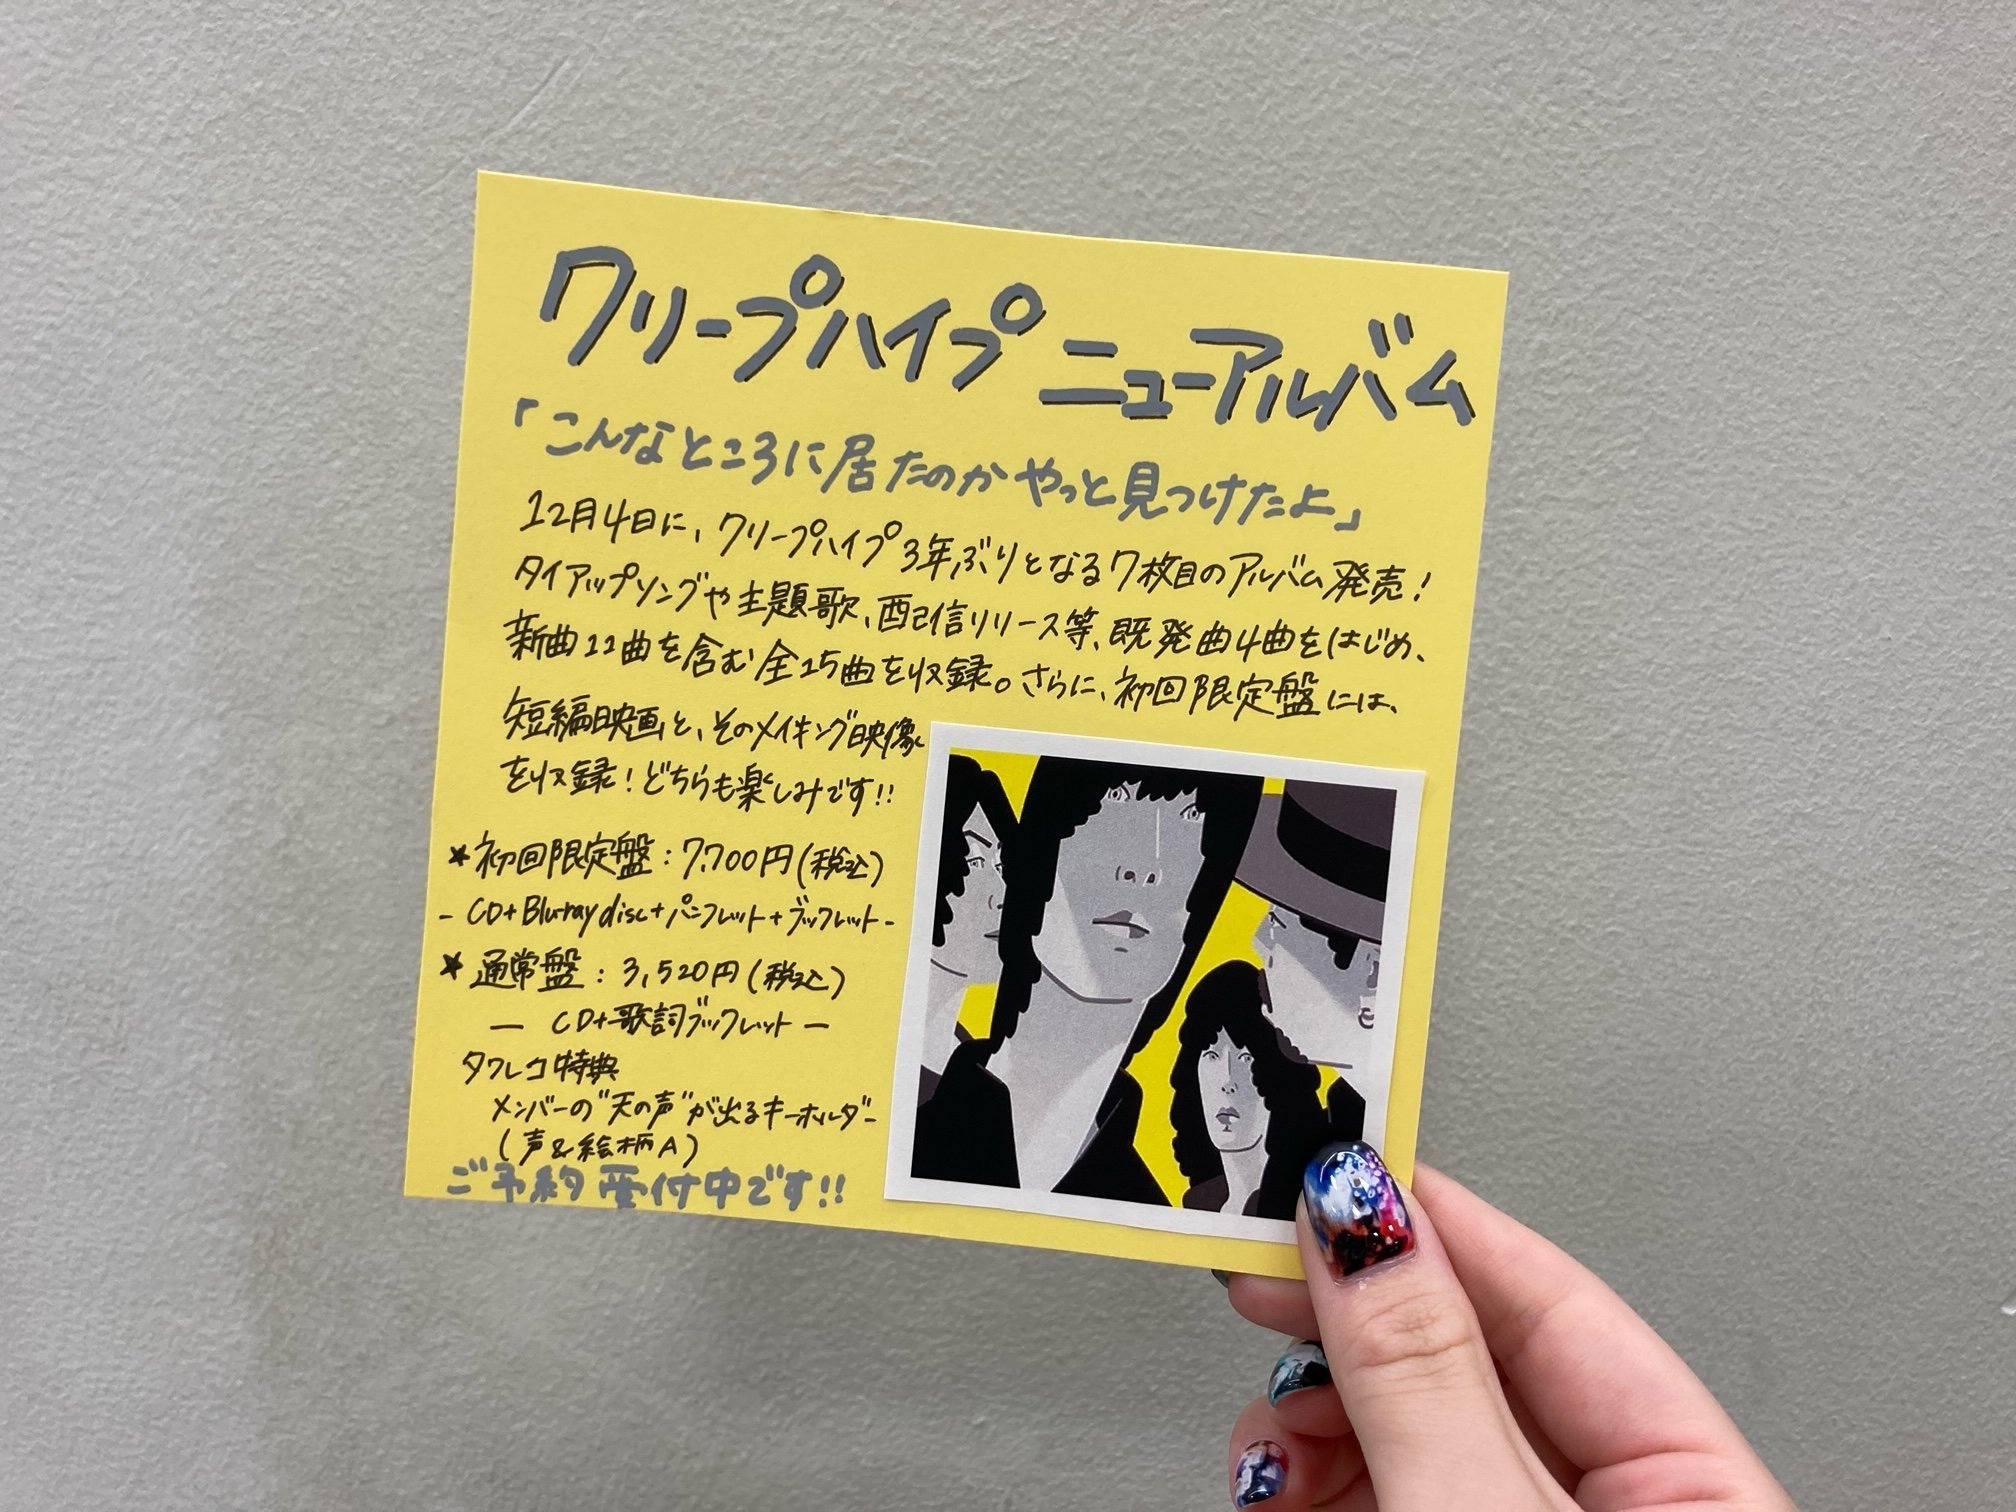 クリープハイプ ニューアルバム
「こんなところに居たのかやっと見つけたよ」
12月4日に、クリープハイプ3年ぶりとなる7枚目のアルバム発売!
タイアップソングや主題歌、配信リリース等、既発曲4曲をはじめ、
新曲11曲を含む全15曲を収録。さらに、初回限定盤には、
短編映画と、そのメイキング映像
を収録!どちらも楽しみです!!
★初回限定盤:7,700円(税込)
- CD+Blu-ray disc+パンフレット+ブックレット-
★通常盤:3,520円(税込)
— CD+歌詞ブックレット —
タワレコ特典
メンバーの"天の声"が出るキーホルダー
(声&絵柄A)
ご予約受付中です!!